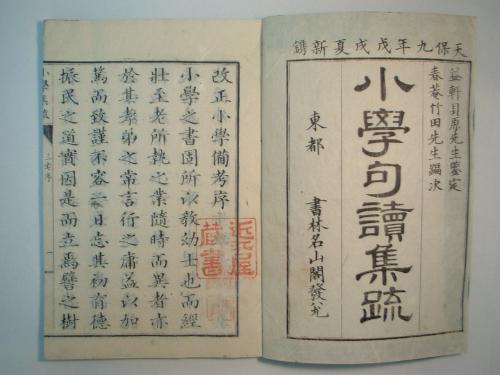 天保九年戊戌夏新鐫
益軒貝原先生鑒定
春菴竹田先生編次
小學句讀集疏
東都
書林名山閣發兌
改正小學備考序
小學之書固所以教幼士也而經
壯至老所執之業隨時而異者亦
於其孝弟之常言行之庸益以加
篤而致謹不容一日忘其初有德
振民之道實因是而立焉譬之樹
藏書